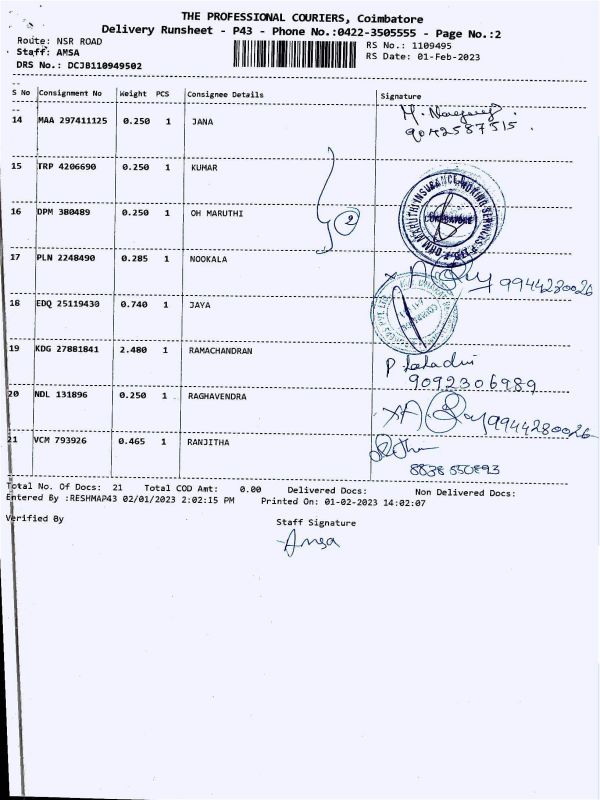 THE PROFESSIONAL COURIERS, Coimbatore
Delivery Runsheet - P43 - Phone No.:0422-3505555 - Page No.:2
Route: NSR ROAD
Staff: AMSA
DRS No.: DCJB110949502
RS No.: 1109495
RS Date: 01-Feb-2023
S No Consignment No Weight PCS Consignee Details Signature
14 MAA 297411125 0.250 1 JANA
9042587515.
15 TRP 4206690 0.250 1 KUMAR
16 DPM 380489 0.250 1 OH MARUTHI
2
17 PLN 2248490 0.285 1 NOOKALA
9944280026
18 EDQ 25119430 0.740 1 JAYA
19 KDG 27881841 2.480 1 RAMACHANDRAN
9092306989
20 NDL 131896 0.250 1 RAGHAVENDRA
9944280026
21 VCM 793926 0.465 1 RANJITHA
8838 650893
Total No. Of Docs: 21 Total COD Amt: 0.00 Delivered Docs: Non Delivered Docs:
Entered By :RESHMAP43 02/01/2023 2:02:15 PM Printed On: 01-02-2023 14:02:07
Verified By
Staff Signature
Amsa